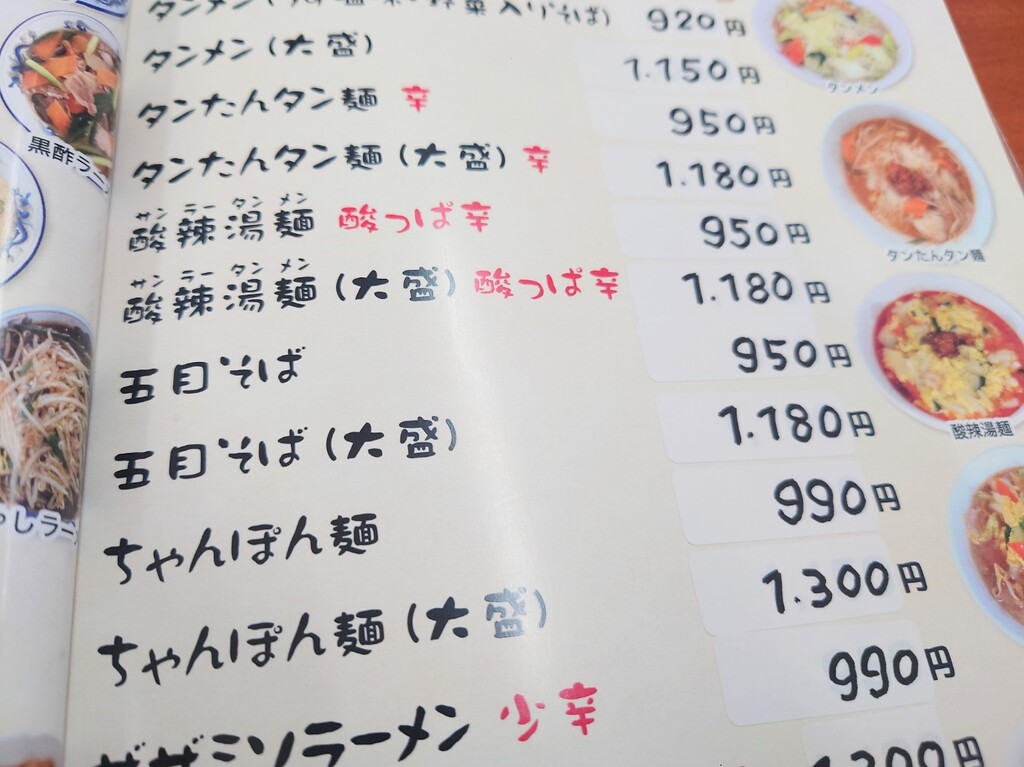 タンメン 野菜入りそば) 920円
タンメン(大盛) 1.150円
タンたんタン麺 辛 950円
タンたんタン麺(大盛)辛 1.180円
サンラータンメン
酸辣湯麺 酸っぱ辛 950円
サンラータンメン
酸辣湯麺(大盛)酸っぱ辛 1.180円
五目そば 950円
五目そば(大盛) 1.180円
ちゃんぽん麺 990円
ちゃんぽん麺(大盛) 1.300円
ミソラーメン 少辛 990円
1.300円
黒酢ラーメ
やしラー
タンメン
タンたんタン麺
酸辣湯麺